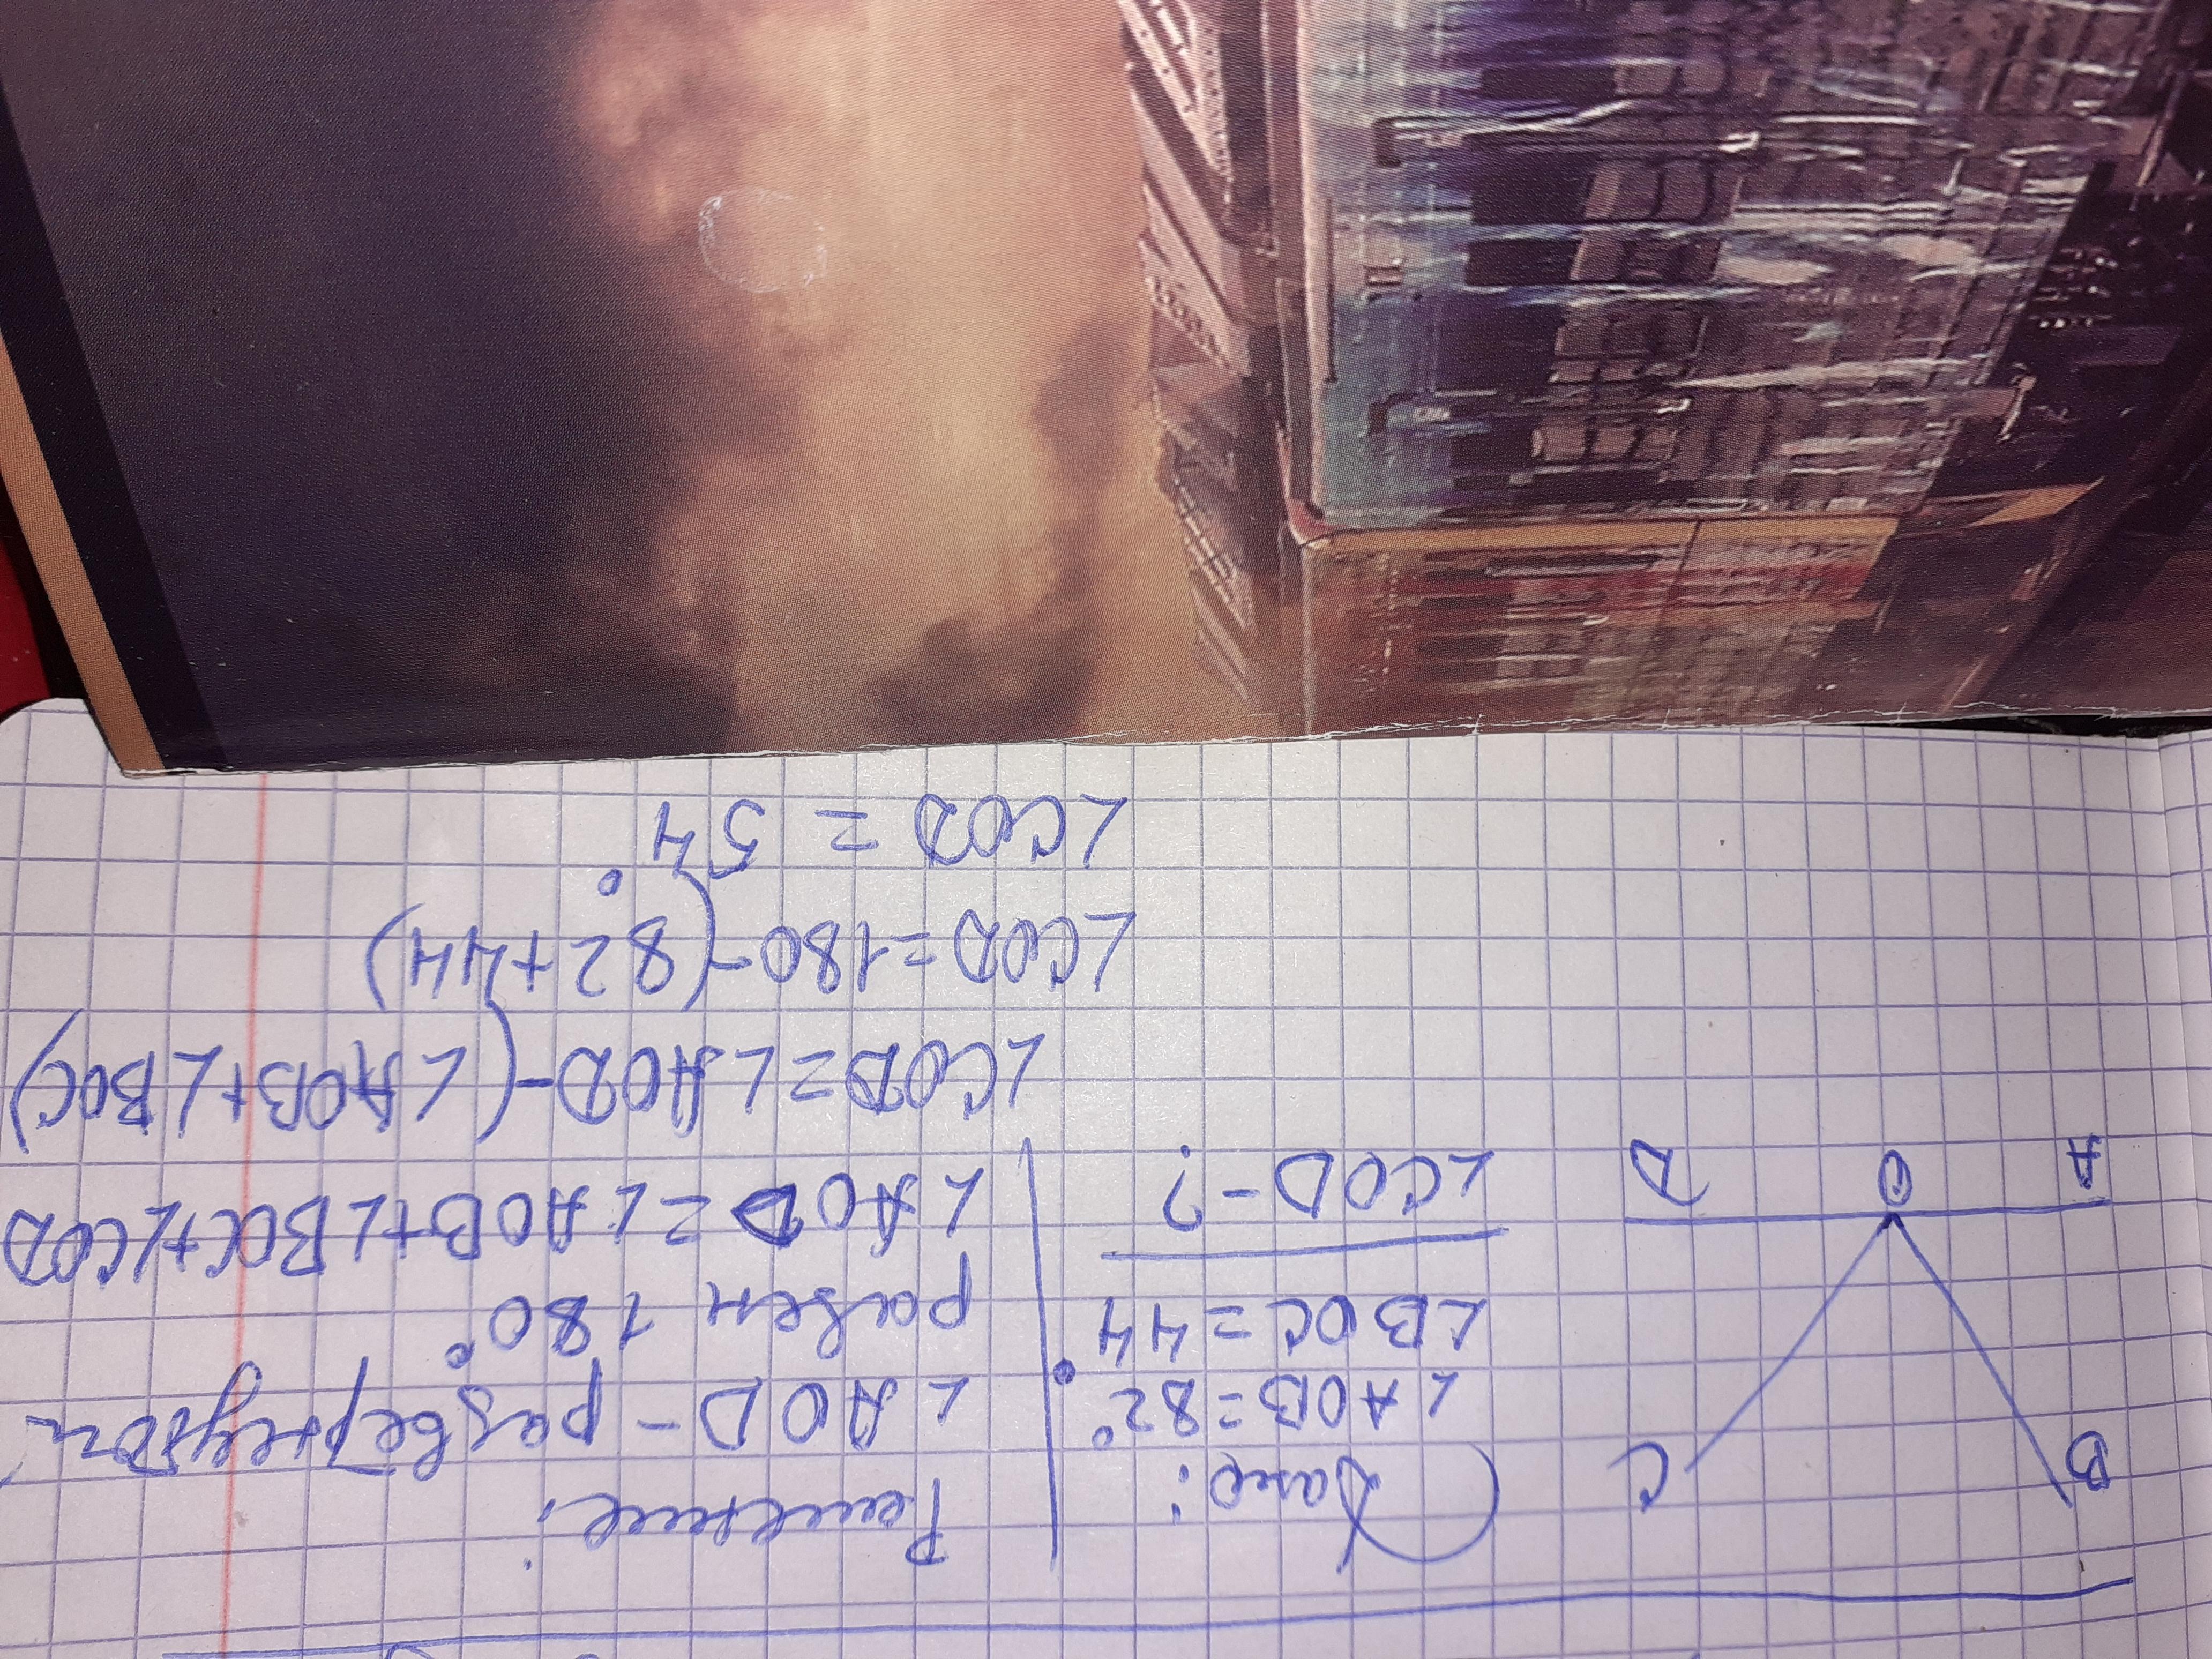 Дано:
∠AOB=82°
∠BOC=44°
∠COD-?
B
C
A
O
D
Решение:
∠AOD - развёрнутый
равен 180°
∠AOD=∠AOB+∠BOC+∠COD
∠COD=∠AOD-(∠AOB+∠BOC)
∠COD=180-(82+44)
∠COD = 54°